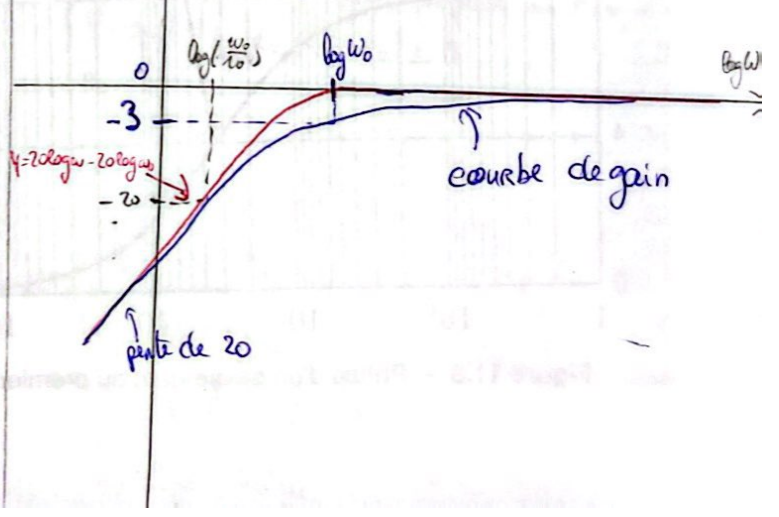 log(ω₀/10)
log ω₀
log ω
0
-3
y=20logω-20logω₀
-20
courbe de gain
pente de 20
Figure 11.6 -